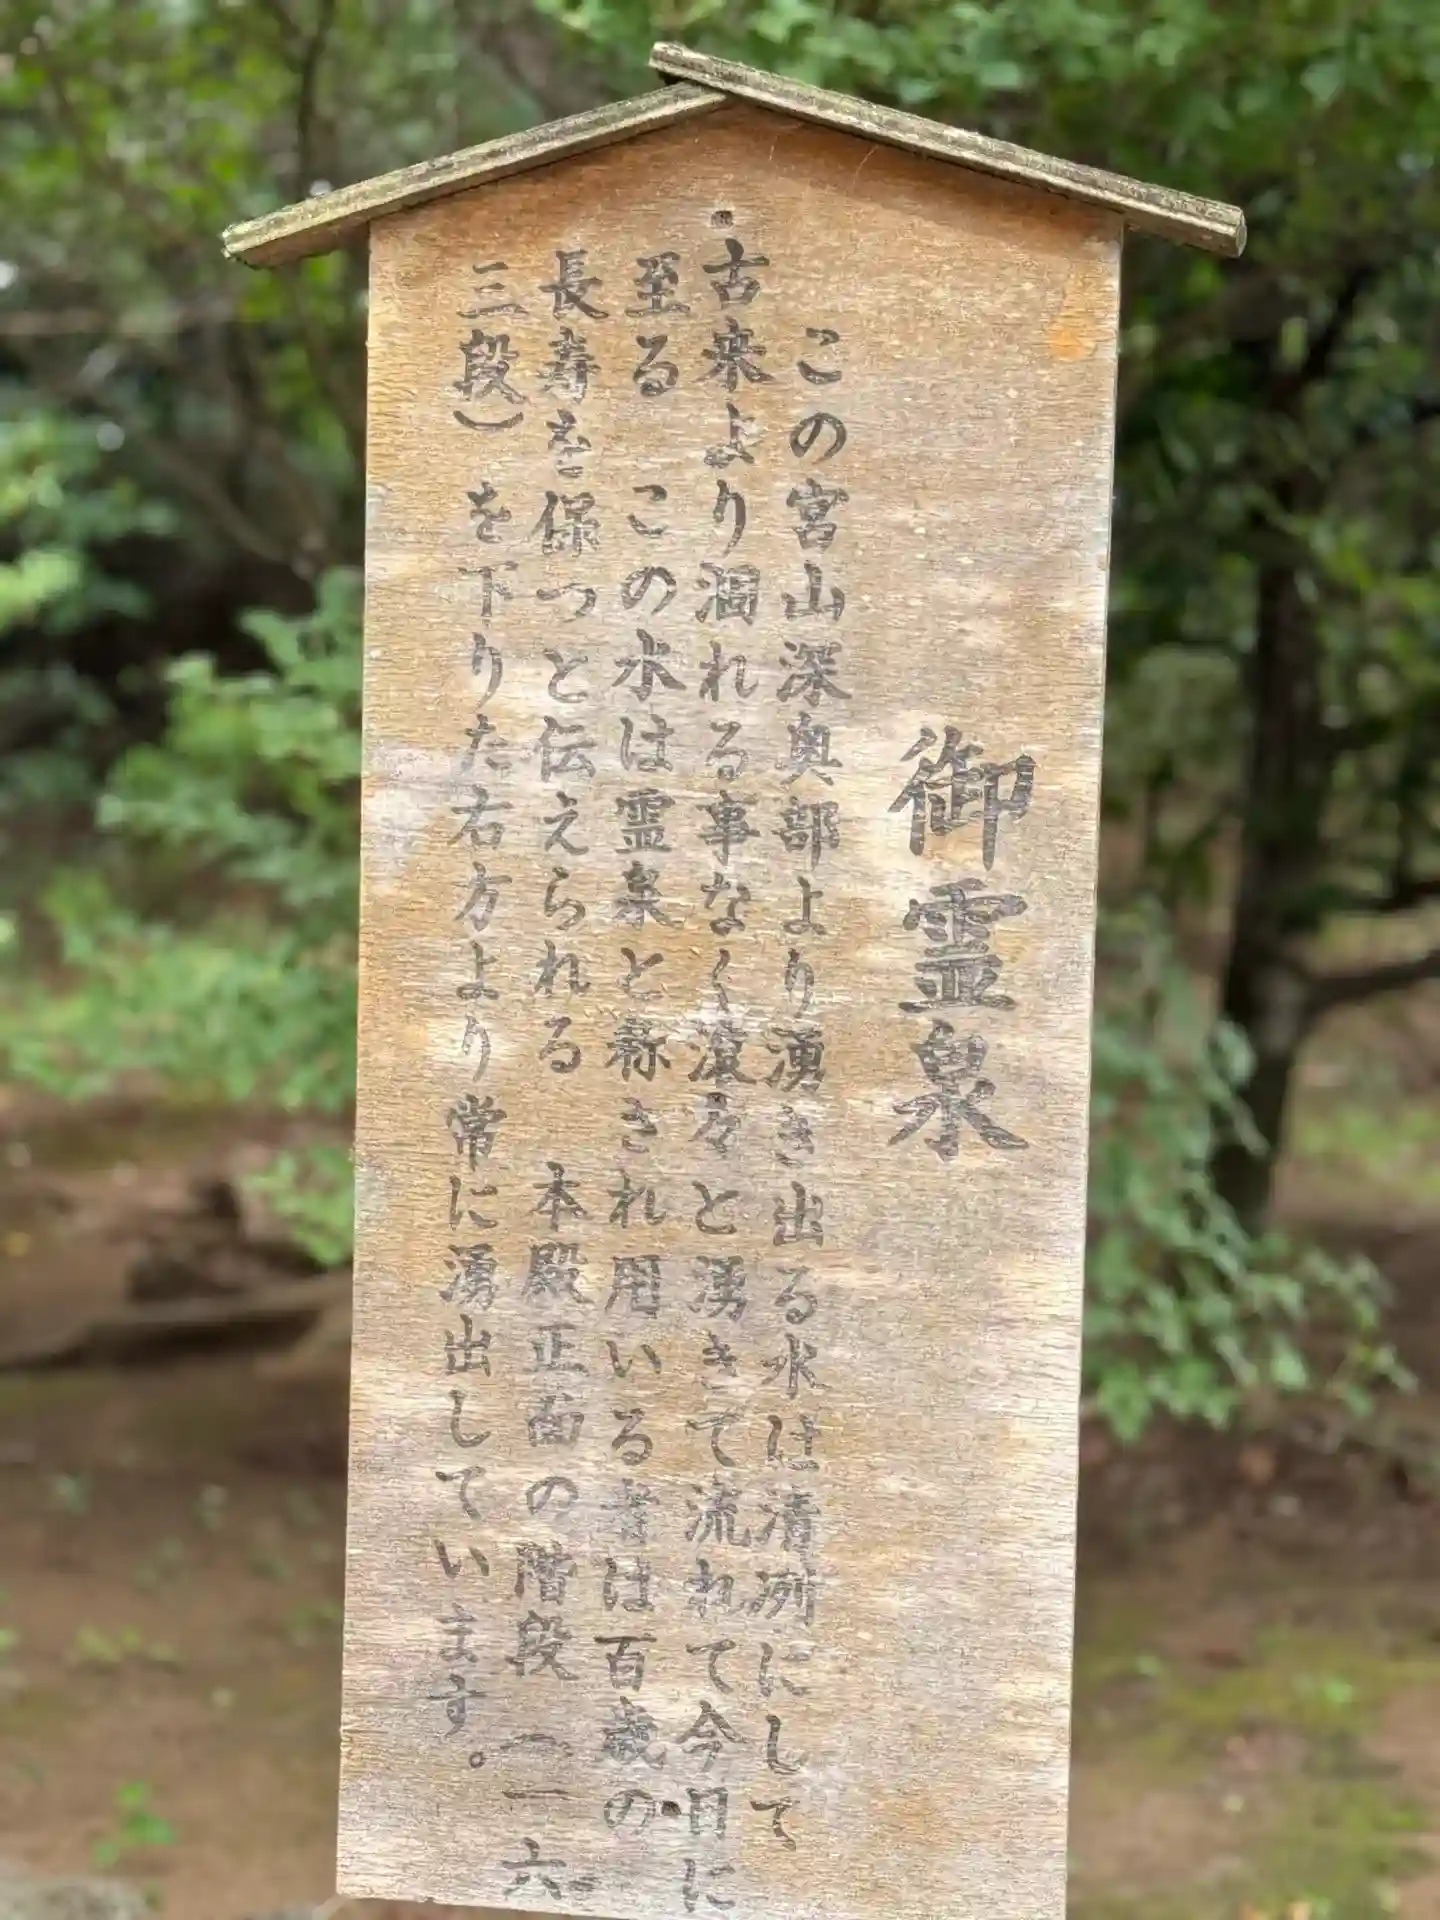 御霊泉
この宮山深奥部より湧き出る水は清冽にして
古来より涸れる事なく滾々と湧きて流れて今日に
至る この水は霊泉と稱され用いる者は百歳の
長寿を保つと伝えられる 本殿正面の階段(一六
三段)を下りた右方より常に湧出しています。